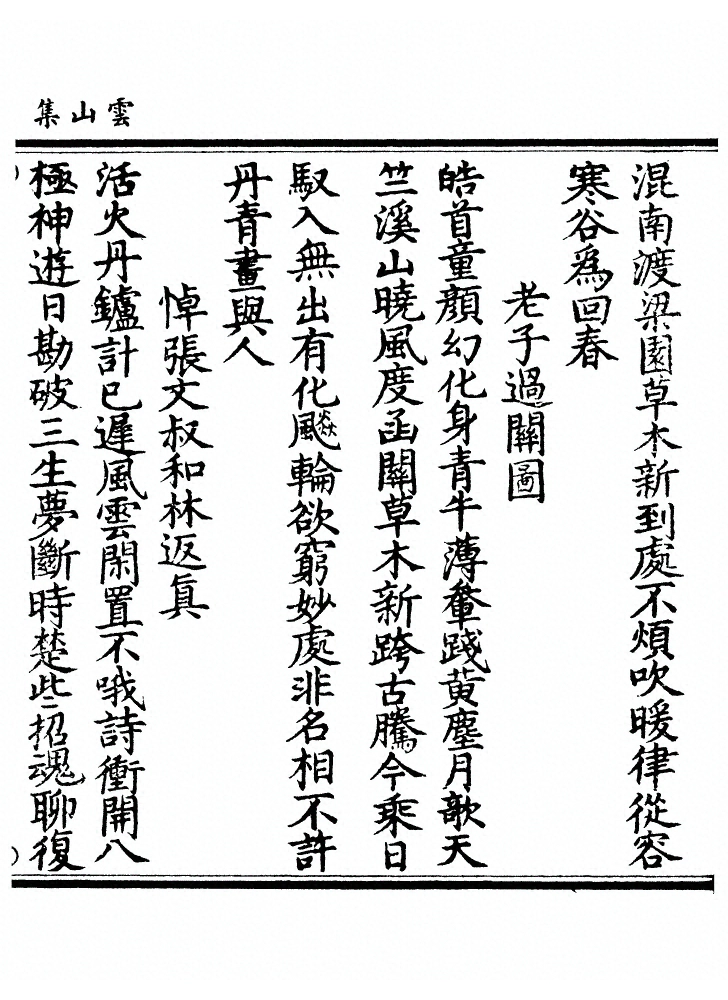 雲山集
混南渡梁園草木新到處不煩吹暖律從容
寒谷爲回春
老子過關圖
皓首童顏幻化身青牛薄軬踐黃塵月歌天
竺溪山曉風度函關草木新跨古騰今乘日
馭入無出有化飈輪欲窮妙處非名相不許
丹青畫與人
悼張文叔和林返真
活火丹鑪計已遲風雲閑置不哦詩衝開八
極神遊日勘破三生夢斷時楚些招魂聊復